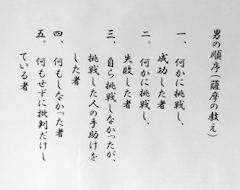 男の順序(薩摩の教え)
一、何かに挑戦し、
成功した者
二、何かに挑戦し、
失敗した者
三、自ら挑戦しなかったが、
挑戦した人の手助けを
した者
四、何もしなかった者
五、何もせずに批判だけし
ている者